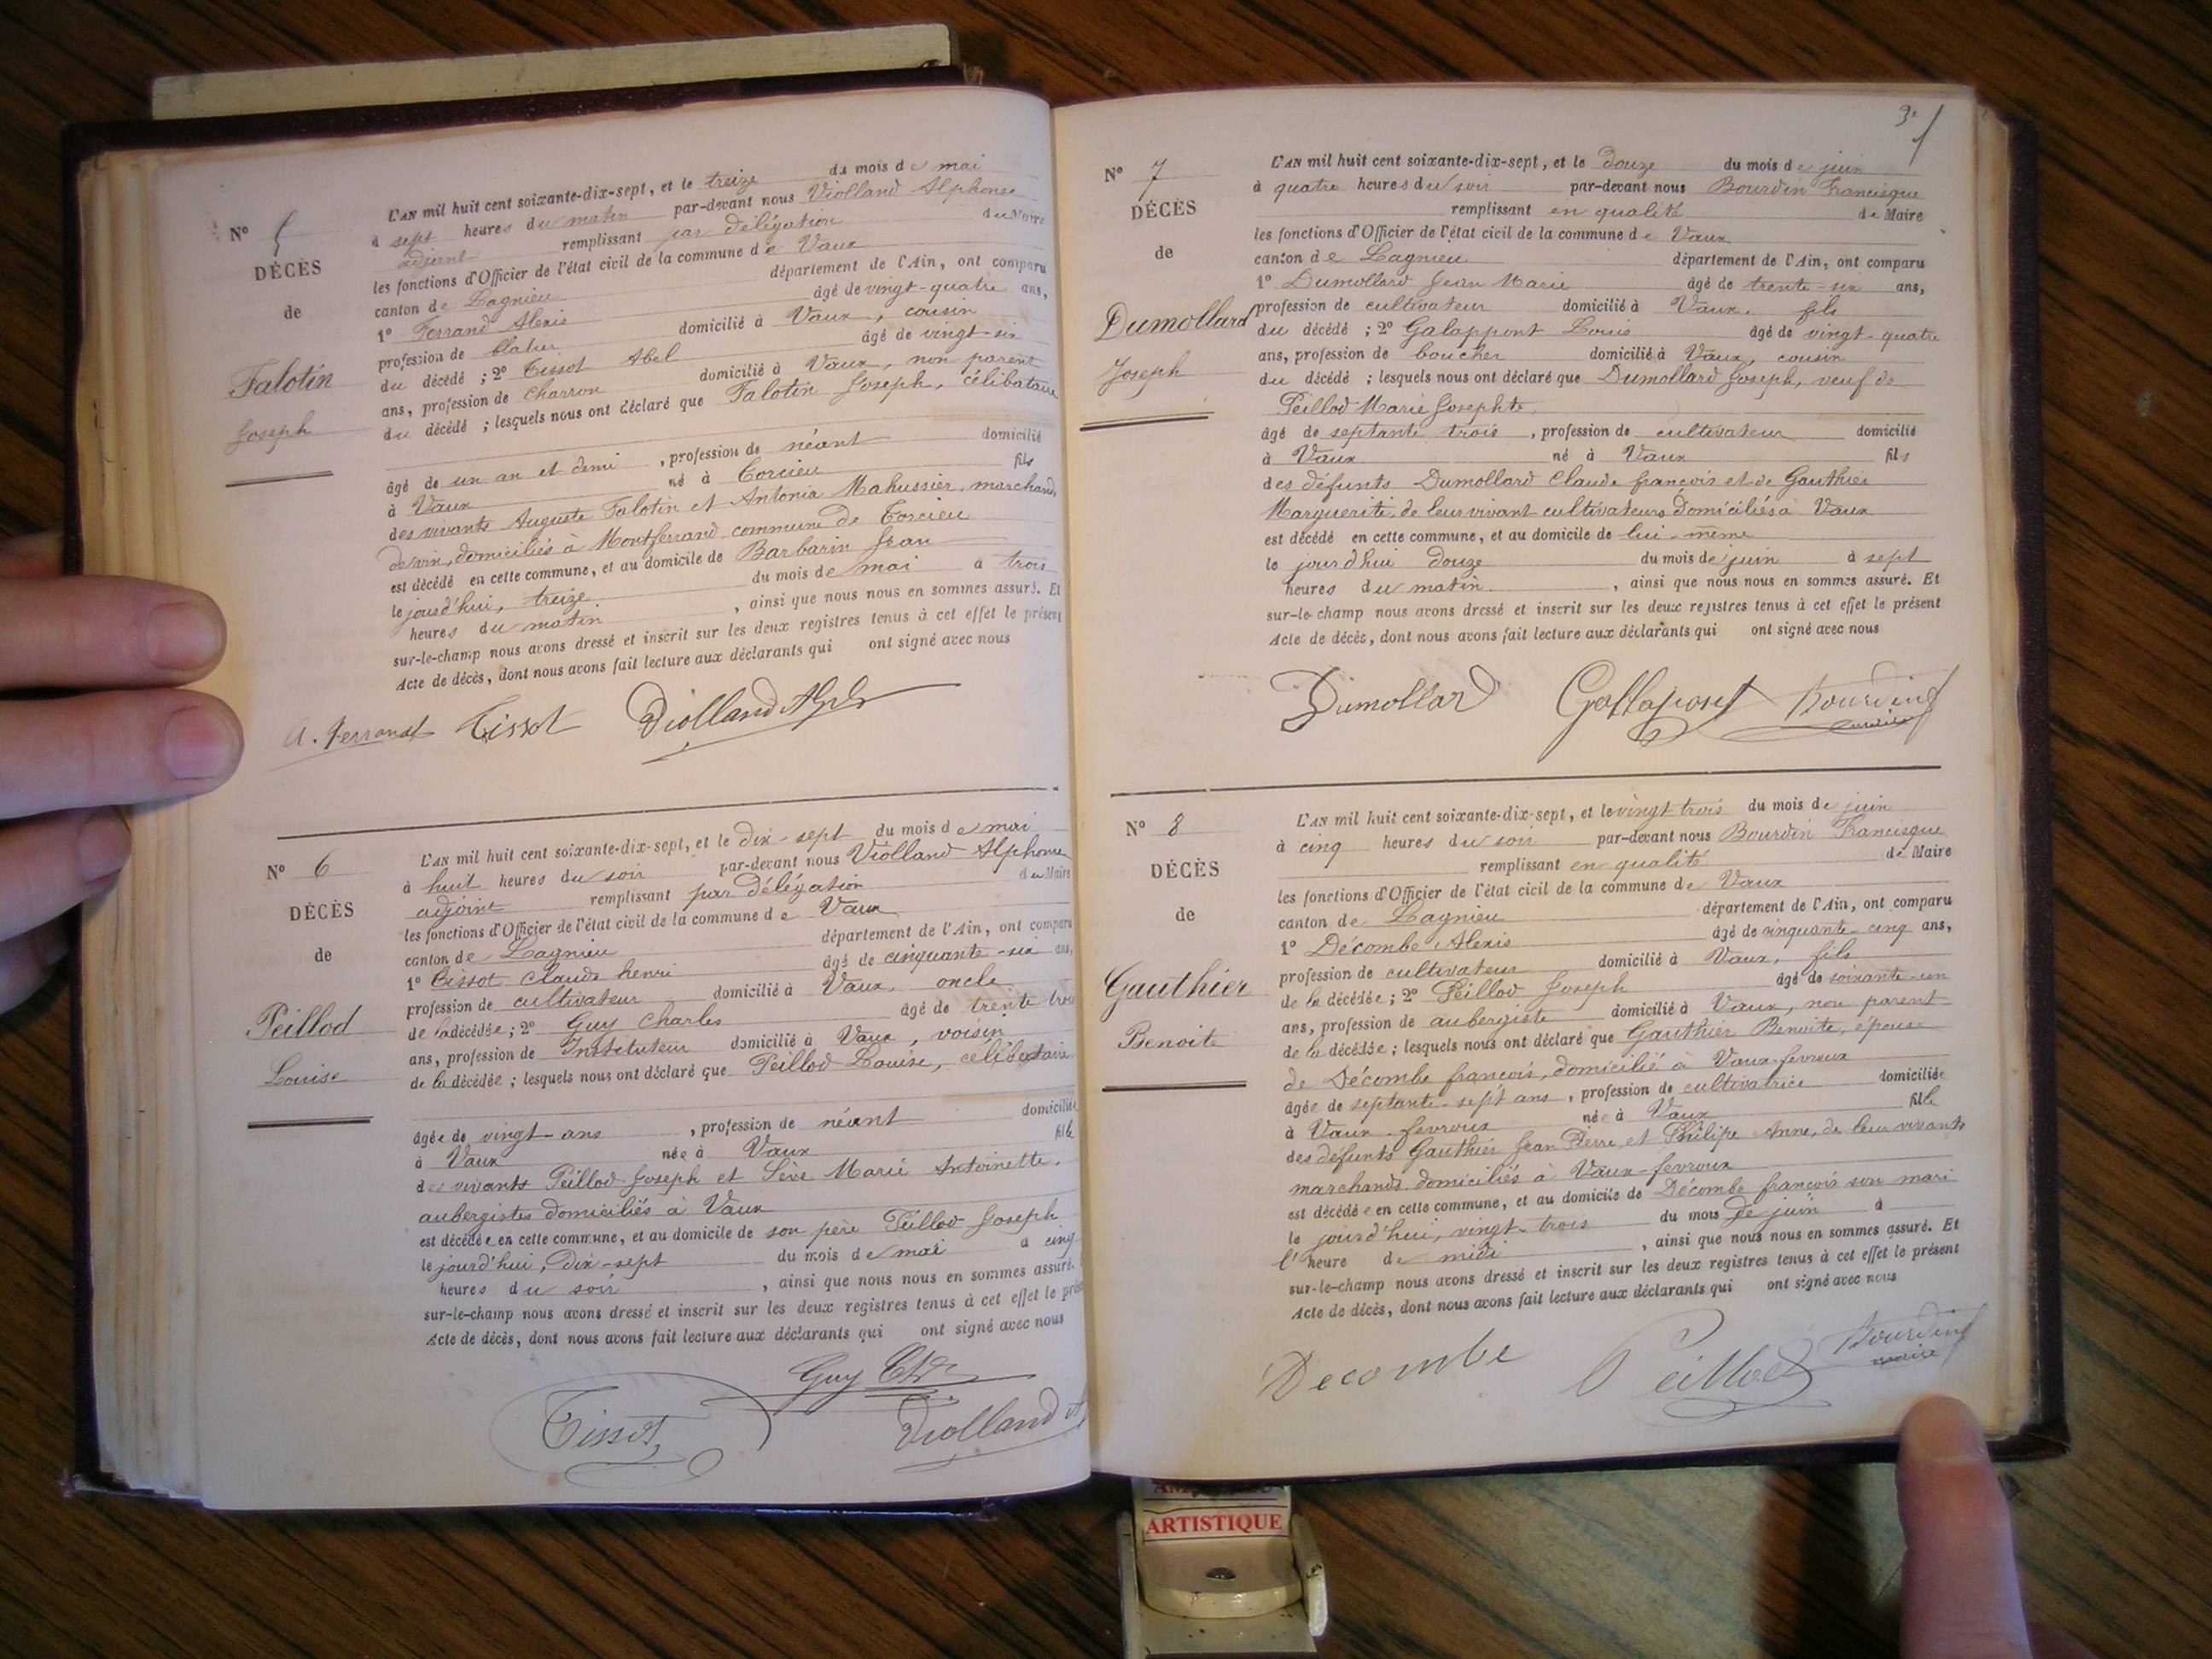 N° 5
DÉCÈS
de
Falotin
Joseph
L'AN mil huit cent soixante-dix-sept, et le treize du mois de mai
à sept heures du matin par-devant nous Violland Alphonse
adjoint remplissant par délégation du Maire
les fonctions d'Officier de l'état civil de la commune de Vaux
canton de Lagnieu département de l'Ain, ont comparu
1° Ferrand Alexis âgé de vingt-quatre ans,
profession de domicilié à Vaux, cousin
du décédé ; 2° Tissot Abel âgé de vingt-six
ans, profession de charron domicilié à Vaux, non parent
du décédé ; lesquels nous ont déclaré que Falotin Joseph, célibataire
âgé de un an et demi, profession de néant domicilié
à Vaux né à Torcieu fils
des vivants Auguste Falotin et Antonia Mahussier, marchands
de vin, domiciliés à Montferrand commune de Torcieu
est décédé en cette commune, et au domicile de Barbarin Jean
le jourd'hui, treize du mois de mai à trois
heures du matin, ainsi que nous nous en sommes assuré. Et
sur-le-champ nous avons dressé et inscrit sur les deux registres tenus à cet effet le présent
Acte de décès, dont nous avons fait lecture aux déclarants qui ont signé avec nous
A. Ferrand Tissot Violland Alph
N° 6
DÉCÈS
de
Peillod
Louise
L'AN mil huit cent soixante-dix-sept, et le dix-sept du mois de mai
à huit heures du soir par-devant nous Violland Alphonse
adjoint remplissant par délégation du Maire
les fonctions d'Officier de l'état civil de la commune de Vaux
canton de Lagnieu département de l'Ain, ont comparu
1° Tissot Claude henri âgé de cinquante-six ans,
profession de cultivateur domicilié à Vaux, oncle
de la décédée ; 2° Guy Charles âgé de trente trois
ans, profession de Instituteur domicilié à Vaux, voisin
de la décédée ; lesquels nous ont déclaré que Peillod Louise, célibataire
âgée de vingt ans, profession de néant domiciliée
à Vaux née à Vaux fille
des vivants Peillod Joseph et Sève Marie Antoinette,
aubergistes domiciliés à Vaux
est décédée en cette commune, et au domicile de son père Peillod Joseph
le jourd'hui, dix-sept du mois de mai à cinq
heures du soir, ainsi que nous nous en sommes assuré.
sur-le-champ nous avons dressé et inscrit sur les deux registres tenus à cet effet le prés
Acte de décès, dont nous avons fait lecture aux déclarants qui ont signé avec nous
Guy Ch
Tissot Violland A
3
N° 7
DÉCÈS
de
Dumollard
Joseph
L'AN mil huit cent soixante-dix-sept, et le douze du mois de juin
à quatre heures du soir par-devant nous Bourdin Francisque
remplissant en qualité de Maire
les fonctions d'Officier de l'état civil de la commune de Vaux
canton de Lagnieu département de l'Ain, ont comparu
1° Dumollard Jean Marie âgé de trente-six ans,
profession de cultivateur domicilié à Vaux, fils
du décédé ; 2° Galappont Louis âgé de vingt-quatre
ans, profession de boucher domicilié à Vaux, cousin
du décédé ; lesquels nous ont déclaré que Dumollard Joseph, veuf de
Peillod Marie Josephte
âgé de septante trois, profession de cultivateur domicilié
à Vaux né à Vaux fils
des défunts Dumollard Claude françois et de Gauthier
Marguerite, de leur vivant cultivateurs domiciliés à Vaux
est décédé en cette commune, et au domicile de lui-même
le jourd'hui douze du mois de juin à sept
heures du matin, ainsi que nous nous en sommes assuré. Et
sur-le-champ nous avons dressé et inscrit sur les deux registres tenus à cet effet le présent
Acte de décès, dont nous avons fait lecture aux déclarants qui ont signé avec nous
Dumollard Gallapont Bourdin
N° 8
DÉCÈS
de
Gauthier
Benoite
L'AN mil huit cent soixante-dix-sept, et le vingt trois du mois de juin
à cinq heures du soir par-devant nous Bourdin Francisque
remplissant en qualité de Maire
les fonctions d'Officier de l'état civil de la commune de Vaux
canton de Lagnieu département de l'Ain, ont comparu
1° Décombe Alexis âgé de cinquante-cinq ans,
profession de cultivateur domicilié à Vaux, fils
de la décédée ; 2° Peillod Joseph âgé de soixante-un
ans, profession de aubergiste domicilié à Vaux, non parent
de la décédée ; lesquels nous ont déclaré que Gauthier Benoite, épouse
de Décombe françois, domicilié à Vaux-fevroux
âgée de septante-sept ans, profession de cultivatrice domiciliée
à Vaux-fevroux née à Vaux fille
des défunts Gauthier Jean Pierre et Philipe Anne, de leur vivants
marchands domiciliés à Vaux-fevroux
est décédée en cette commune, et au domicile de Décombe françois son mari
le jourd'hui, vingt-trois du mois de juin à
l'heure de midi, ainsi que nous nous en sommes assuré. Et
sur-le-champ nous avons dressé et inscrit sur les deux registres tenus à cet effet le présent
Acte de décès, dont nous avons fait lecture aux déclarants qui ont signé avec nous
Decombe Peillod Bourdin
maire
ARTISTIQUE